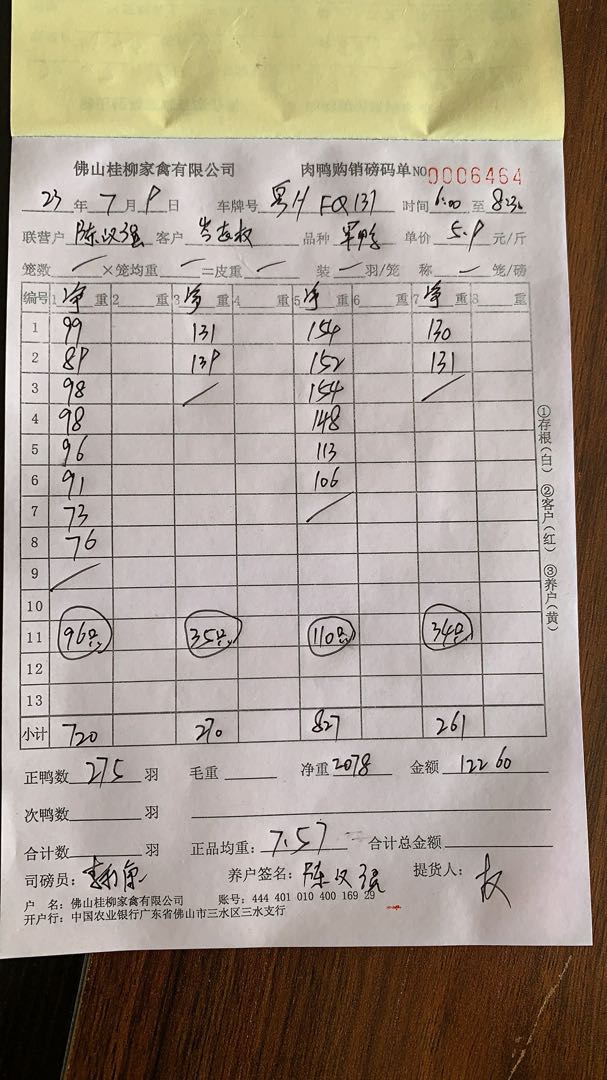 佛山桂柳家禽有限公司 肉鸭购销磅码单 NO 0006464
23 年 7 月 9 日 车牌号 粤H FQ131 时间 6:00 至 8:30
联营户 陈汉强 客户 品种 单价 5.9 元/斤
笼数 / ×笼均重 — =皮重 — 装 — 羽/笼 称 — 笼/磅
编号 1 净 重 2 重 3 净 重 4 重 5 净 重 6 重 7 净 重 8 重
1 99 131 154 130
2 89 139 152 131
3 98 / 154 /
4 98 148
5 96 113
6 91 106
7 73 /
8 76
9 /
10
11 96只 35只 110只 34只
12
13
小计 720 270 827 261
正鸭数 275 羽 毛重 净重 2078 金额 12260
次鸭数 羽
合计数 羽 正品均重: 7.57 合计总金额
司磅员: 养户签名: 陈汉强 提货人: 权
户 名: 佛山桂柳家禽有限公司 账号: 444 401 010 400 169 29
开户行: 中国农业银行广东省佛山市三水区三水支行
①存根(白) ②客户(红) ③养户(黄)